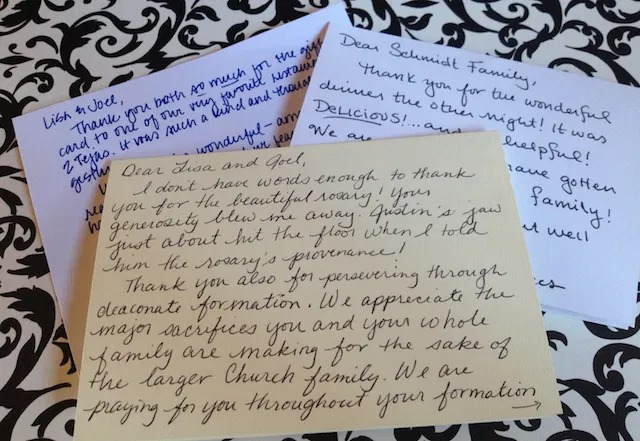 Lisa & Joel,
Thank you both so much for the gift
card to one of our very favorite restaurants
2 Tejas. It was such a kind and
wonderful –
Dear Schmidt Family,
Thank you for the wonderful
dinner the other night! It was
DELICIOUS!...and helpful!
We are
have gotten
family!
well
Dear Lisa and Joel,
I don't have words enough to thank
you for the beautiful rosary! Your
generosity blew me away. Justin's jaw
just about hit the floor when I told
him the rosary's provenance!
Thank you also for persevering through
deaconate formation. We appreciate the
major sacrifices you and your whole
family are making for the sake of
the larger Church family. We are
praying for you throughout your formation
→